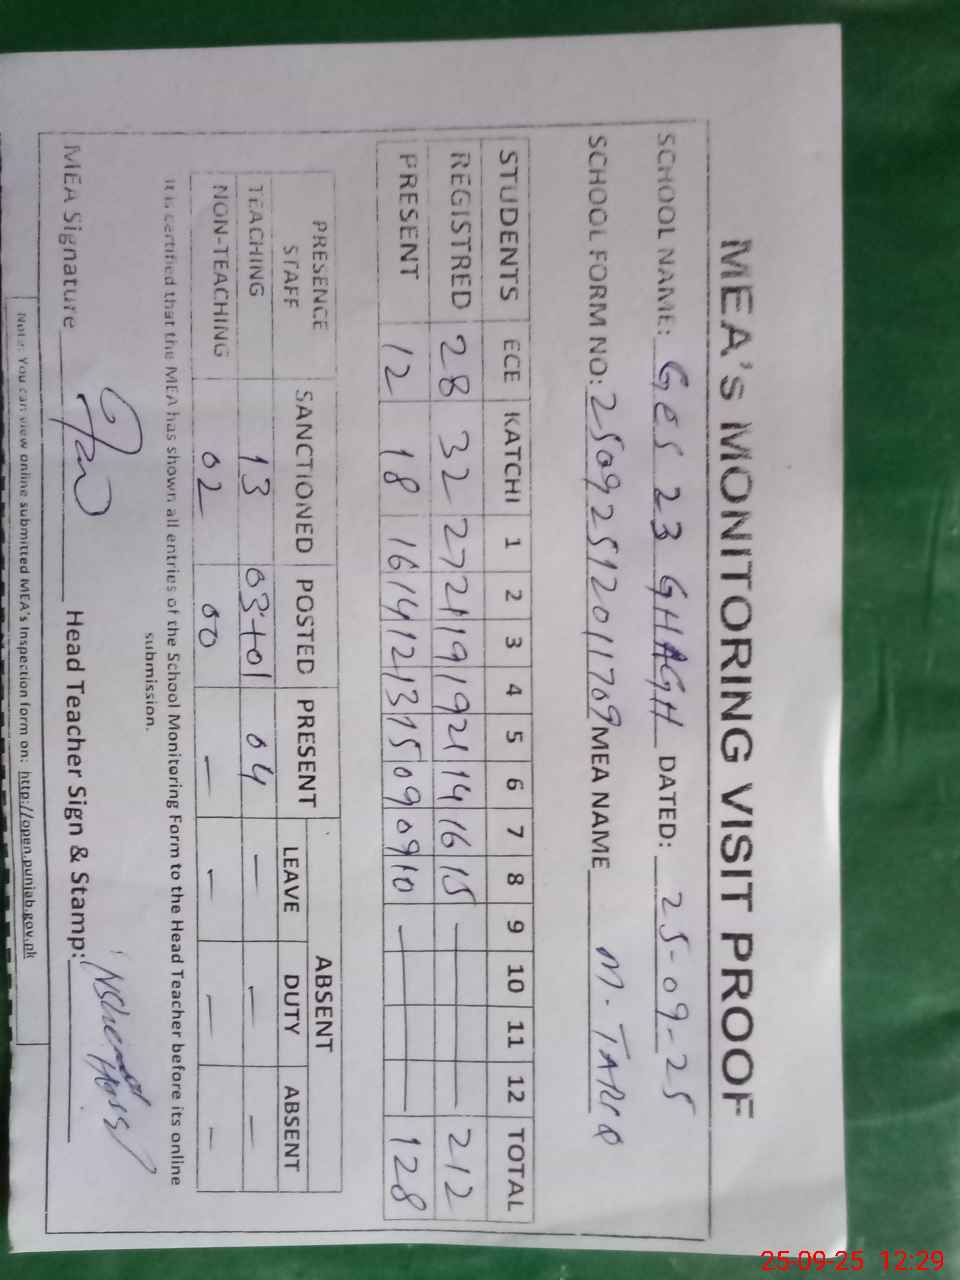 MEA's MONITORING VISIT PROOF
SCHOOL NAME: GES 23 GHAGH DATED: 25-09-25
SCHOOL FORM NO: 2509251201709 MEA NAME M. TARIQ
STUDENTS ECE KATCHI 1 2 3 4 5 6 7 8 9 10 11 12 TOTAL
REGISTRED 28 32 27 21 19 19 21 14 16 15 — — — — 212
PRESENT 12 18 16 14 12 13 15 09 09 10 — — — — 128
PRESENCE STAFF SANCTIONED POSTED PRESENT ABSENT
LEAVE DUTY ABSENT
TEACHING 13 03+01 04 — — —
NON-TEACHING 02 00 — — — —
It is certified that the MEA has shown all entries of the School Monitoring Form to the Head Teacher before its online
submission.
MEA Signature Head Teacher Sign & Stamp:
Note: You can view online submitted MEA's Inspection form on: http://open.punjab.gov.pk
25-09-25 12:29